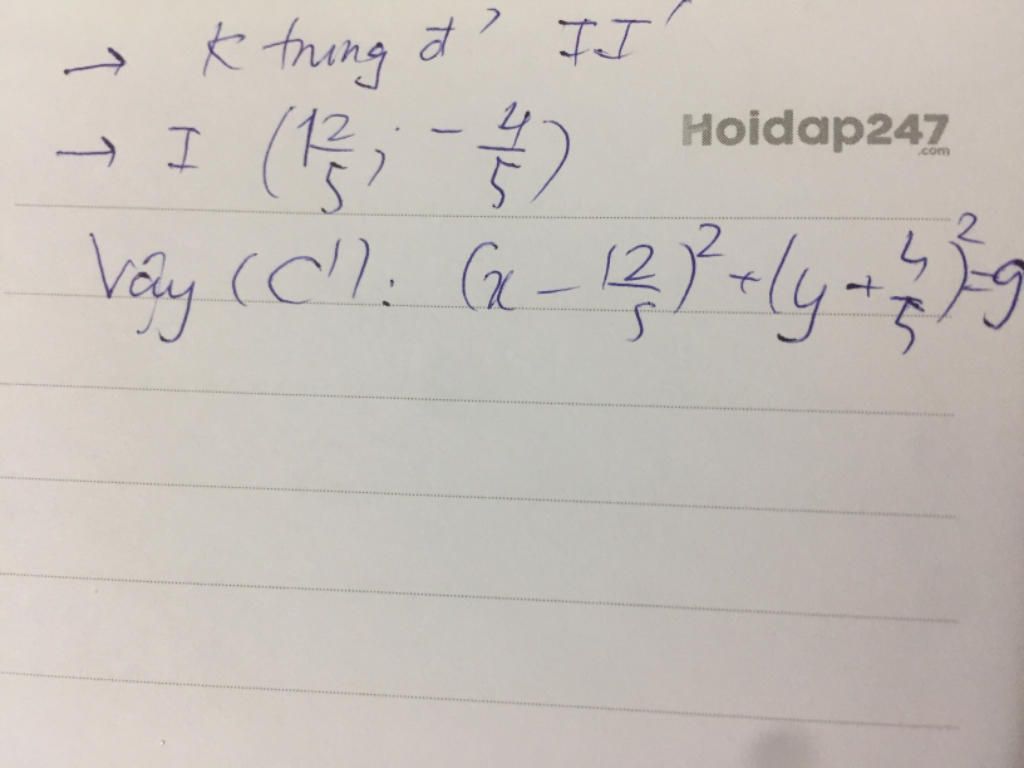 → K trung đ' II'
→ I (12/5; -4/5)
Hoidap247
.com
Vậy (C'): (x - 12/5)² + (y + 4/5)² = 9